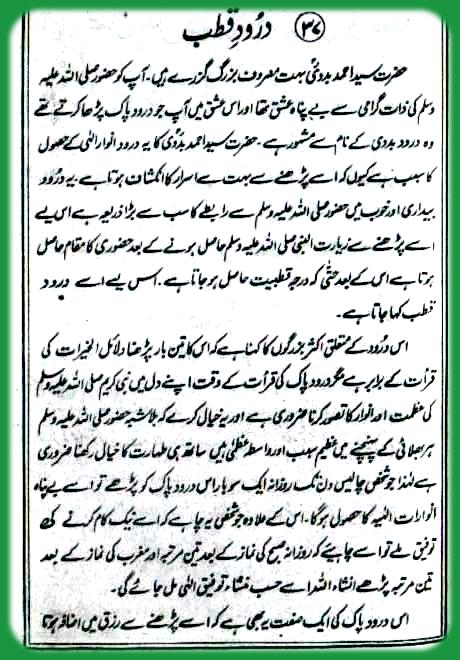 ۳۷ درُودِ قطب
حضرت سیّد احمد بدوّیؒ بہت معروف بزرگ گزرے ہیں۔ آپ کو حضور صلی اللہ علیہ
وسلم کی ذات گرامی سے بے پناہ عشق تھا اور اس عشق میں آپ جو درود پاک پڑھا کرتے تھے
وہ درود بدوی کے نام سے مشہور ہے۔ حضرت سیّد احمد بدوّی کا یہ درود انوارِ الٰہی کے حصول
کا سبب ہے کیوں کہ اسے پڑھنے سے بہت سے اسرار کا انکشاف ہوتا ہے۔ یہ درُود
بیداری اور خوب میں حضور صلی اللہ علیہ وسلم سے رابطے کا سب سے بڑا ذریعہ ہے اس لیے
اسے پڑھنے سے زیارت النبی صلی اللہ علیہ وسلم حاصل ہونے کے بعد حضوری کا مقام حاصل
ہوتا ہے اس کے بعد حتّٰی کہ درجہ قطبیت حاصل ہو جاتا ہے۔ اس لیے اسے درود
قطب کہا جاتا ہے۔
اس درُود کے متعلق اکثر بزرگوں کا کہنا ہے کہ اس کا تین بار پڑھنا دلائل الخیرات کی
قرأت کے برابر ہے مگر درود پاک کی قرأت کے وقت اپنے دل میں نبی کریم صلی اللہ علیہ وسلم
کی عظمت اور انوار کا تصور کرنا ضروری ہے اور یہ خیال کرے کہ بلاشبہ حضور صلی اللہ علیہ وسلم
ہر بھلائی کے پہنچنے میں عظیم سبب اور واسطہ عظمٰی ہیں ساتھ ہی طہارت کا خیال رکھنا ضروری
ہے لہٰذا جو شخص چالیس دن تک روزانہ ایک سو بار اس درود پاک کو پڑھے تو اسے بے پناہ
انوارات الٰہیہ کا حصول ہوگا۔ اس کے علاوہ جو شخص یہ چاہے کہ اسے نیک کام کرنے کی
توفیق ملے تو اسے چاہیئے کہ روزانہ صبح کی نماز کے بعد تین مرتبہ اور مغرب کی نماز کے بعد
تین مرتبہ پڑھے انشاء اللہ اسے حسب منشاء توفیق الٰہی مل جائے گی۔
اس درود پاک کی ایک صفت یہ بھی ہے کہ اسے پڑھنے سے رزق میں اضافہ ہوتا